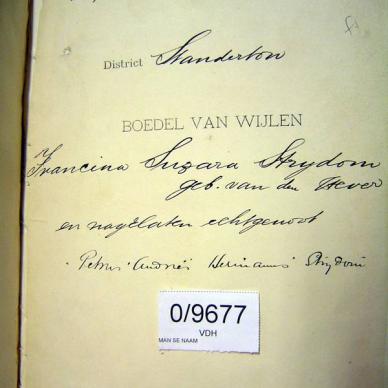 District Standerton
BOEDEL VAN WIJLEN
Francina Suzara Strydom
geb. van den Hever
en nagelaten echtgenoot
Petrus Andries Hermanus Strydom
0/9677
VDH
MAN SE NAAM